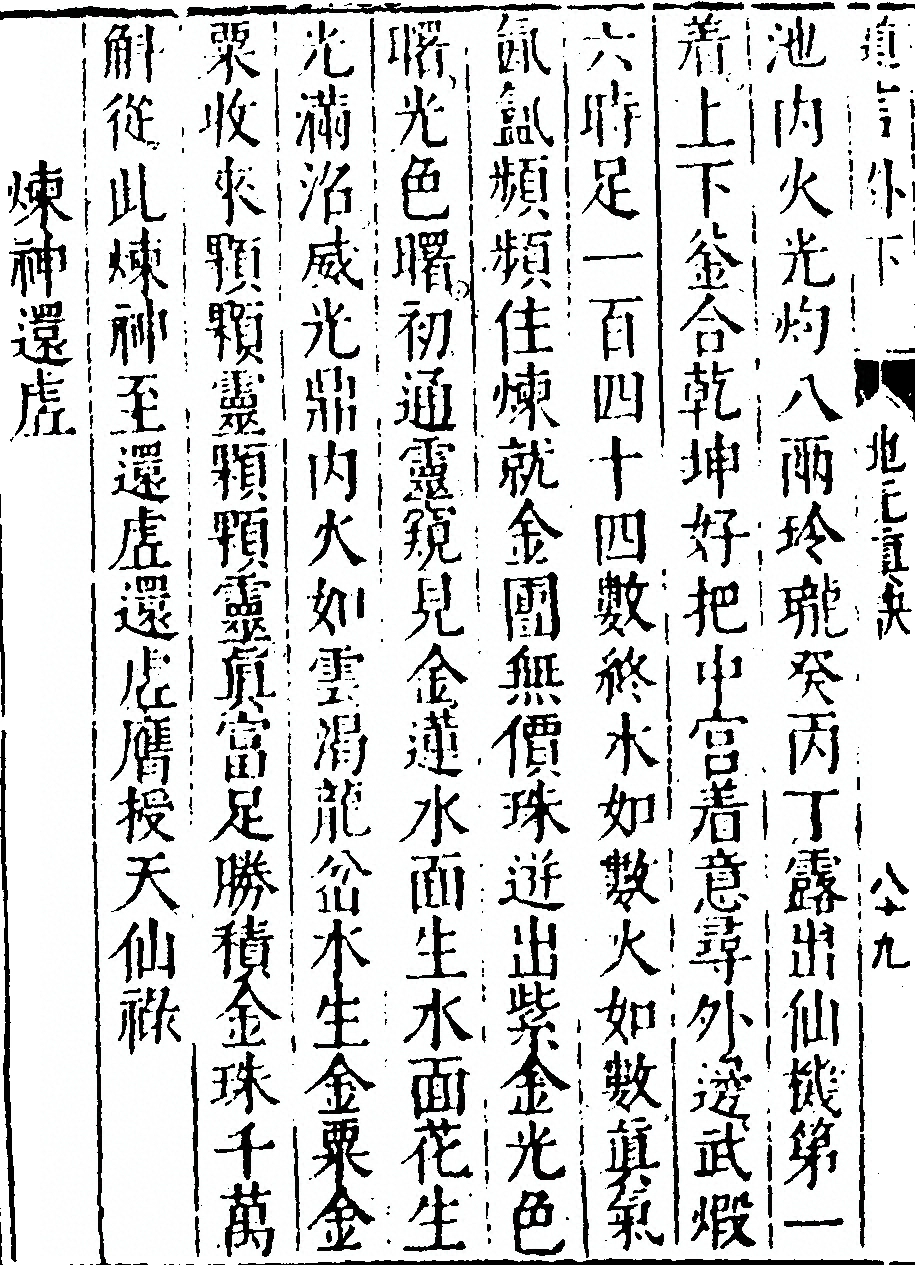 真言外下 地元真訣 八十九
池内火光灼八兩玲瓏癸丙丁露出仙機第一
着上下釜合乾坤好把中宮着意尋外邊武煆
六時足一百四十四數終水如數火如數眞氣
氤氳頻頻住煉就金團無價珠逬出紫金光色
曙光色曙初通靈窺見金蓮水面生水面花生
光滿沼威光鼎内火如雲渴龍岔水生金粟金
粟收來顆顆靈顆顆靈眞富足勝積金珠千萬
斛從此煉神至還虛還虛膺授天仙祿
煉神還虛